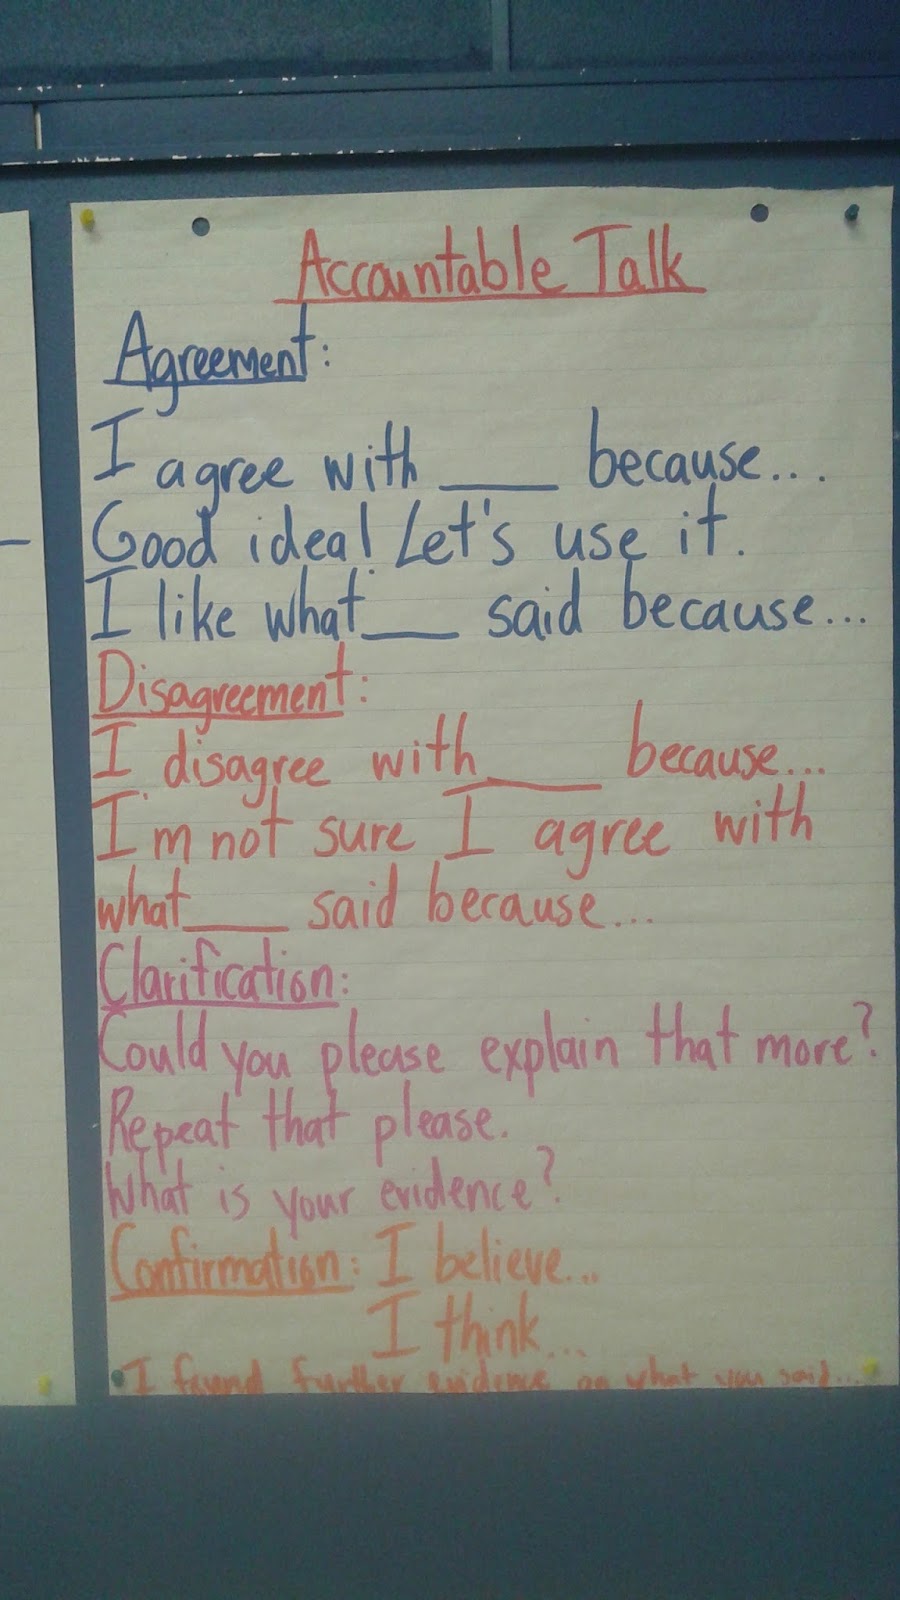 Accountable Talk
Agreement:
I agree with ____ because....
Good idea! Let's use it.
I like what ____ said because...
Disagreement:
I disagree with ____ because...
I'm not sure I agree with
what ____ said because...
Clarification:
Could you please explain that more?
Repeat that please.
What is your evidence?
Confirmation: I believe...
I think...
I found further evidence on what you said...